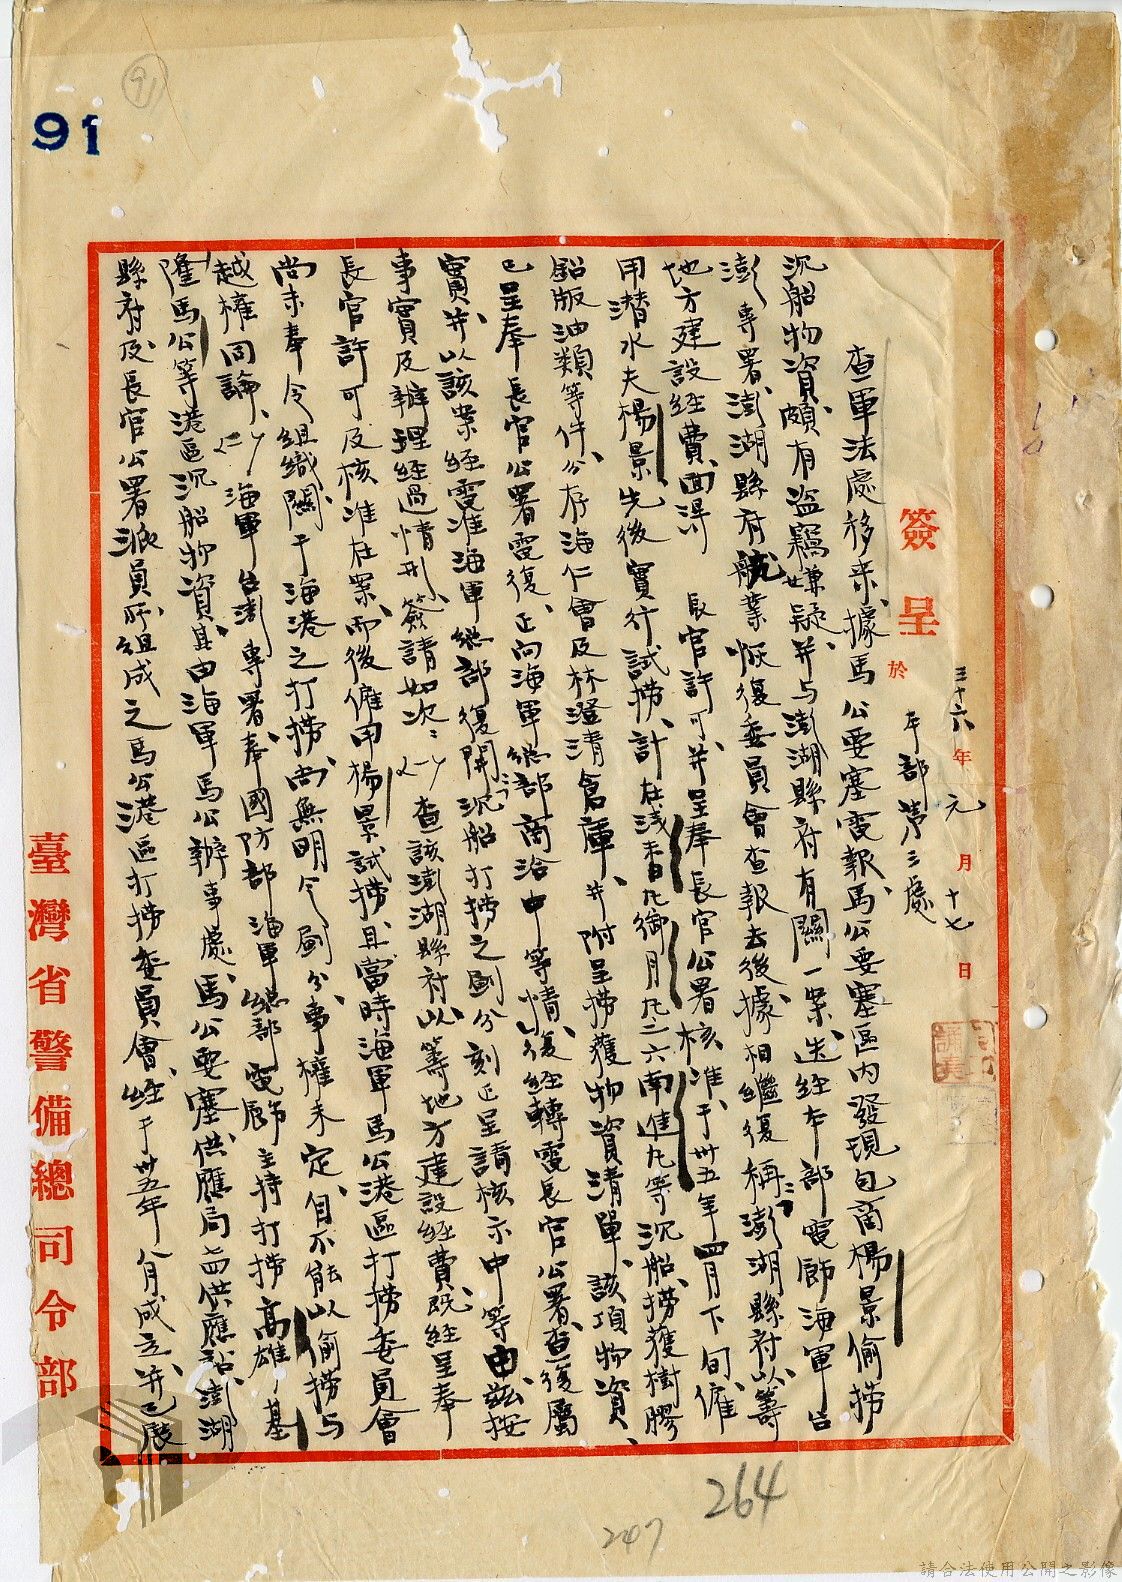 91
簽呈 於 本部第三處
三十六年元月十七日
查軍法處移來、據馬公要塞電報、馬公要塞區內發現包商楊景偷撈
沉船物資、頗有盜竊嫌疑、并与澎湖縣府有關一案、迭經本部電飭海軍台
澎專署、澎湖縣府航業恢復委員會查報去後、據相繼復稱、澎湖縣府以籌
地方建設經費、面得 長官許可、并呈奉長官公署核准、于卅五年四月下旬、僱
用潛水夫楊景先後實行試撈、計在淺香丸御月丸二六南進丸等沉船、撈獲樹膠
鉛版油類等件、分存海仁會及林澄清倉庫、并附呈撈獲物資清單、該項物資、
已呈奉長官公署電復、正向海軍總部商洽中等情、復經轉電長官公署、查復屬
實、并以該案經電准海軍總部復開沉船打撈之劃分刻正呈請核示中等由、茲按
事實及辦理經過情形、簽請如次：〈一〉查該澎湖縣府、以籌地方建設經費、既經呈奉
長官許可及核准在案、而後僱用楊景試撈、且當時海軍馬公港區打撈委員會
尚未奉令組織、關于海港之打撈、尚無明令劃分、事權未定、自不能以偷撈与
越權同論、〈二〉海軍台澎專署、奉國防部海軍總部電飭主持打撈高雄、基
隆馬公等港區沉船物資、其由海軍馬公辦事處、馬公要塞供應局
縣府及長官公署派員所組成之馬公港區打撈委員會、經于卅五年八月成立、并已展
臺灣省警備總司令部
264
207
請合法使用公開之影像